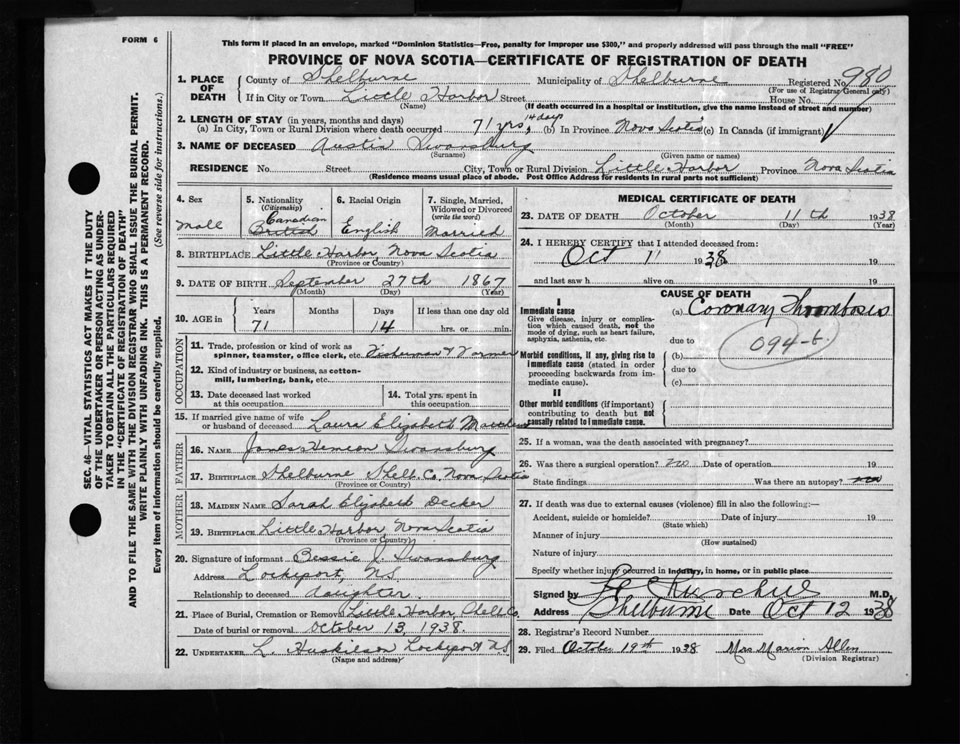 FORM 6
This form if placed in an envelope, marked "Dominion Statistics—Free, penalty for improper use $300," and properly addressed will pass through the mail "FREE"
PROVINCE OF NOVA SCOTIA—CERTIFICATE OF REGISTRATION OF DEATH
1. PLACE OF DEATH County of Shelburne Municipality of Shelburne Registered No. 980
(For use of Registrar General only)
If in City or Town Little Harbor Street House No.
(Name) (If death occurred in a hospital or institution, give the name instead of street and number)
2. LENGTH OF STAY (in years, months and days)
(a) In City, Town or Rural Division where death occurred 71 yrs, 14 days (b) In Province Nova Scotia (c) In Canada (if immigrant)
3. NAME OF DECEASED Austin Swansburg
(Surname) (Given name or names)
RESIDENCE No. Street City, Town or Rural Division Little Harbor Province Nova Scotia
(Residence means usual place of abode. Post Office Address for residents in rural parts not sufficient)
SEC. 46—VITAL STATISTICS ACT MAKES IT THE DUTY
OF THE UNDERTAKER OR PERSON ACTING AS UNDER-
TAKER TO OBTAIN ALL THE PARTICULARS REQUIRED
IN THE "CERTIFICATE OF REGISTRATION OF DEATH"
AND TO FILE THE SAME WITH THE DIVISION REGISTRAR WHO SHALL ISSUE THE BURIAL PERMIT.
WRITE PLAINLY WITH UNFADING INK. THIS IS A PERMANENT RECORD.
Every item of information should be carefully supplied. (See reverse side for instructions.)
4. Sex Mall
5. Nationality (Citizenship) Canadian British
6. Racial Origin English
7. Single, Married, Widowed or Divorced (write the word) Married
8. BIRTHPLACE Little Harbor, Nova Scotia
(Province or Country)
9. DATE OF BIRTH September 27th 1867
(Month) (Day) (Year)
10. AGE in Years Months Days If less than one day
71 14 hrs. or min.
OCCUPATION
11. Trade, profession or kind of work as
spinner, teamster, office clerk, etc. Fisherman & Farmer
12. Kind of industry or business, as cotton-
mill, lumbering, bank, etc.
13. Date deceased last worked at this occupation
14. Total yrs. spent in this occupation
15. If married give name of wife
or husband of deceased Laura Elizabeth
FATHER
16. NAME Swansburg
17. BIRTHPLACE Shelburne Shelb. Co. Nova Scotia
(Province or Country)
MOTHER
18. MAIDEN NAME Sarah Elizabeth Decker
19. BIRTHPLACE Little Harbor, Nova Scotia
(Province or Country)
20. Signature of informant Bessie J. Swansburg
Address Lockeport, N.S.
Relationship to deceased daughter.
21. Place of Burial, Cremation or Removal Little Harbor, Shelb. Co.
Date of burial or removal October 13, 1938.
22. UNDERTAKER L. Huskilson Lockeport N.S.
(Name and address)
MEDICAL CERTIFICATE OF DEATH
23. DATE OF DEATH October 11th 1938
(Month) (Day) (Year)
24. I HEREBY CERTIFY that I attended deceased from:
Oct 11 1938 19
and last saw h alive on 19
CAUSE OF DEATH
I
Immediate cause
Give disease, injury or complication which caused death, not the mode of dying, such as heart failure, asphyxia, asthenia, etc.
(a) Coronary Thrombosis
due to
094-b.
Morbid conditions, if any, giving rise to immediate cause (stated in order proceeding backwards from immediate cause).
(b)
due to
(c)
II
Other morbid conditions (if important) contributing to death but not causally related to immediate cause.
25. If a woman, was the death associated with pregnancy?
26. Was there a surgical operation? no Date of operation 19
State findings Was there an autopsy? no
27. If death was due to external causes (violence) fill in also the following:—
Accident, suicide or homicide? Date of injury 19
(State which)
Manner of injury
(How sustained)
Nature of injury
Specify whether injury occurred in industry, in home, or in public place
Signed by M.D.
Address Shelburne Date Oct 12 1938
28. Registrar's Record Number
29. Filed October 19th 1938 Mrs Marion Allen
(Division Registrar)